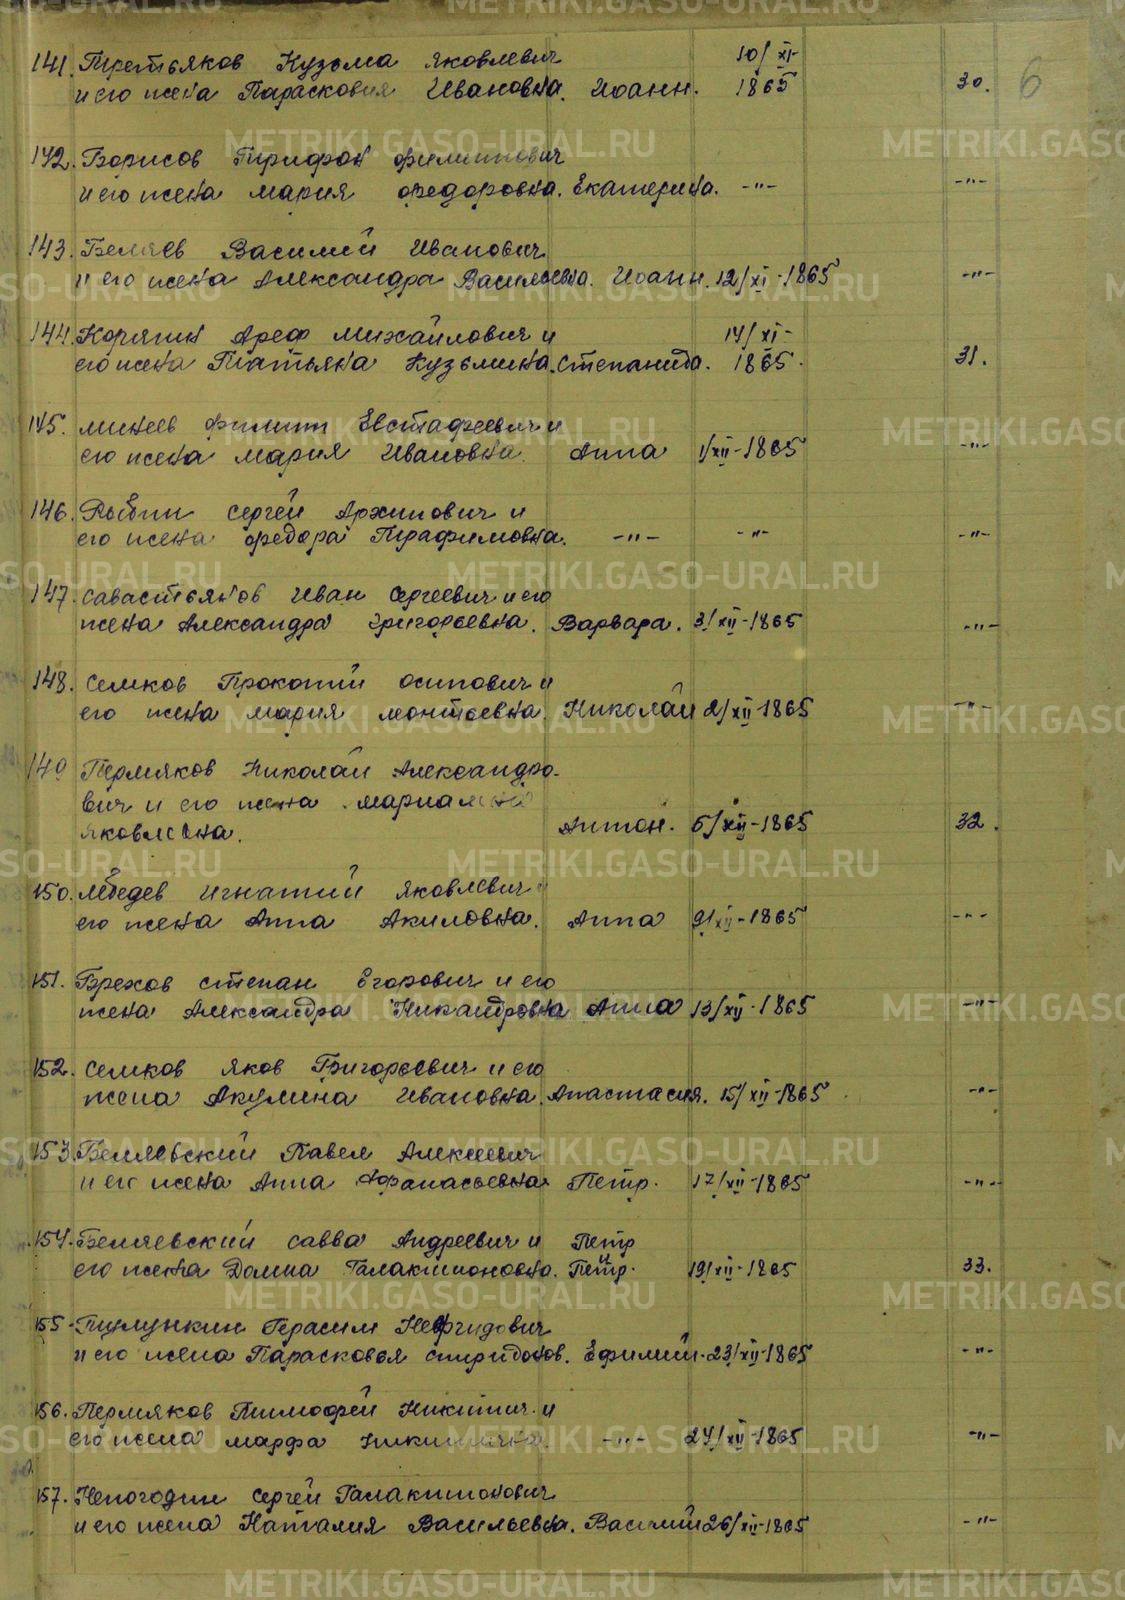 141. Третьяков Кузьма Яковлевич 10/XI-
и его жена Парасковия Ивановна. Иоанн. 1865 30. 6
142. Борисов Трифон Филиппович
и его жена Мария Федоровна. Екатерина. -"- -"-
143. Беляев Василий Иванович
и его жена Александра Васильевна. Иоанн. 12/XI-1865 -"-
144. Корятин Ареф Михайлович и 14/XI-
его жена Татьяна Кузьмина. Степанида. 1865. 31.
145. Минеев Филипп Евстафеевич и
его жена Мария Ивановна. Анна 1/XII-1865 -"-
146. Рыбин Сергей Архипович и
его жена Федора Трафимовна. -"- -"- -"-
147. Савастьянов Иван Сергеевич и его
жена Александра Григорьевна. Варвара. 3/XII-1865 -"-
148. Семков Прокопий Осипович и
его жена Мария Монтеевна. Николай 2/XII-1865 -"-
149 Пермяков Николай Александро-
вич и его жена
Яковлевна. Антон. 5/XII-1865 32.
150. Лебедев Игнатий Яковлевич и
его жена Анна Акиловна. Анна 9/XII-1865 -"-
151. Брехов Степан Егорович и его
жена Александра Никандровна Анна 13/XII-1865 -"-
152. Семков Яков Григорьевич и его
жена Акулина Ивановна. Анастасия. 15/XII-1865 -"-
153. Беляевский Павел Алексеевич
и его жена Анна Афанасьевна. Петр. 17/XII-1865 -"-
154. Беляевский Савва Андреевич и Петр
его жена Домна Галактионовна. и Петр. 19/XII-1865 33.
155. Тулункин Герасим
и его жена Парасковья Спиридонов. Ефимий. 23/XII-1865 -"-
156. Пермяков Тимофей Никитич и
его жена Марфа Никитична. -"- 24/XII-1865 -"-
157. Непогодин Сергей Галактионович
и его жена Наталия Васильевна. Василий 26/XII-1865 -"-
METRIKI.GASO-URAL.RU